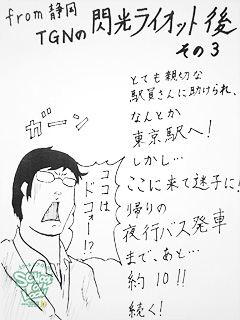 from静岡
TGNの閃光ライオット後
その3
とても親切な
駅員さんに助けられ、
なんとか
東京駅へ!
しかし…
ここに来て迷子に!
帰りの
夜行バス発車
まで、あと…
約10!!
続く!
ガーン
ココは
ドコォー!?